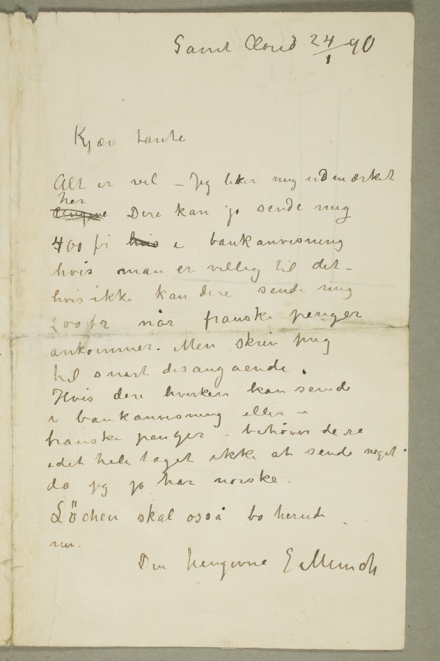 Saint Cloud 24/1 90
Kjære tante
Alt er vel – Jeg liker mig udmærket
her
Dere kan jo sende mig
400 fr hvis i bankanvisning
hvis man er villig til det –
hvis ikke kan dere sende mig
200 fr når franske penger
ankommer. Men skriv mig
til snart desangaaende.
Hvis dere hverken kan sende
i bankanvisning eller i
franske penger behøver dere
i det hele taget ikke at sende noget
da jeg jo har norske.
Löchen skal også bo herude
nu.
Din hengivne E Munch